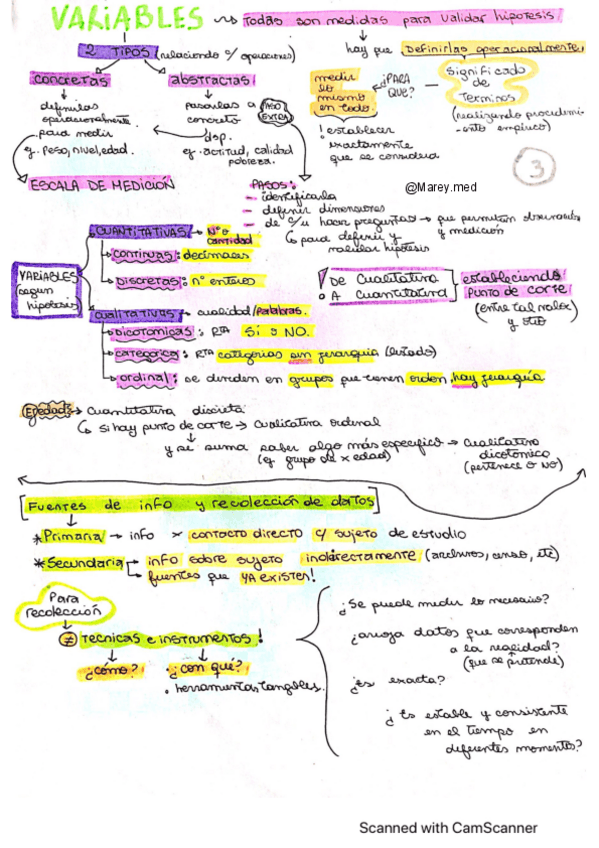 VARIABLES → todas son medidas para validar hipotesis
2 TIPOS (relacionado c/ operaciones)
hay que definirlas operacionalmente
concretas
abstractas
definirlas operacionalmente para medir
eg. Peso, nivel, edad.
pasarlas a concreto
dsp.
eg. actitud, calidad pobreza.
medir lo mismo en todo
¿PARA QUE?
significado de terminos
(realizando procedimi-ento empirico)
! establecer exactamente que se considera
3
@Marey.med
ESCALA DE MEDICIÓN
PASOS:
- identificarla
- definir dimensiones
- de c/u hacer preguntas → que permitan observarlo y medición
para definir y validar hipotesis
VARIABLES (segun hipotesis)
CUANTITATIVAS → N° o cantidad
continuas: decimales
Discretas: n° entero
DE Cualitativa
A Cuantitativa
estableciendo PUNTO DE CORTE
(entre tal valor y otro)
cualitativas → cualidad/Palabras.
DICOTOMICAS: RTA SI o NO.
categorica: RTA categorias sin jerarquia (listado)
ordinal: se dividen en grupos que tienen orden, hay jerarquia.
Eg edad: → Cuantitativa discreta
si hay punto de corte → cualitativa ordinal
y se suma saber algo más especifico → cualitativa dicotómica
(eg. grupo de x edad)
(pertenece o NO)
Fuentes de info y recolección de datos
* Primaria → info x contacto directo c/ sujeto de estudio
* Secundaria → info sobre sujeto indirectamente (archivos, censo, etc)
→ fuentes que YA EXISTEN!
Para recolección
≠ TECNICAS e INSTRUMENTOS!
¿cómo?
¿con qué?
herramientas tangibles.
¿Se puede medir lo necesario?
¿arroja datos que corresponden a la realidad?
(que se pretende)
¿Es exacta?
¿Es estable y consistente en el tiempo en diferentes momentos?
Scanned with CamScanner